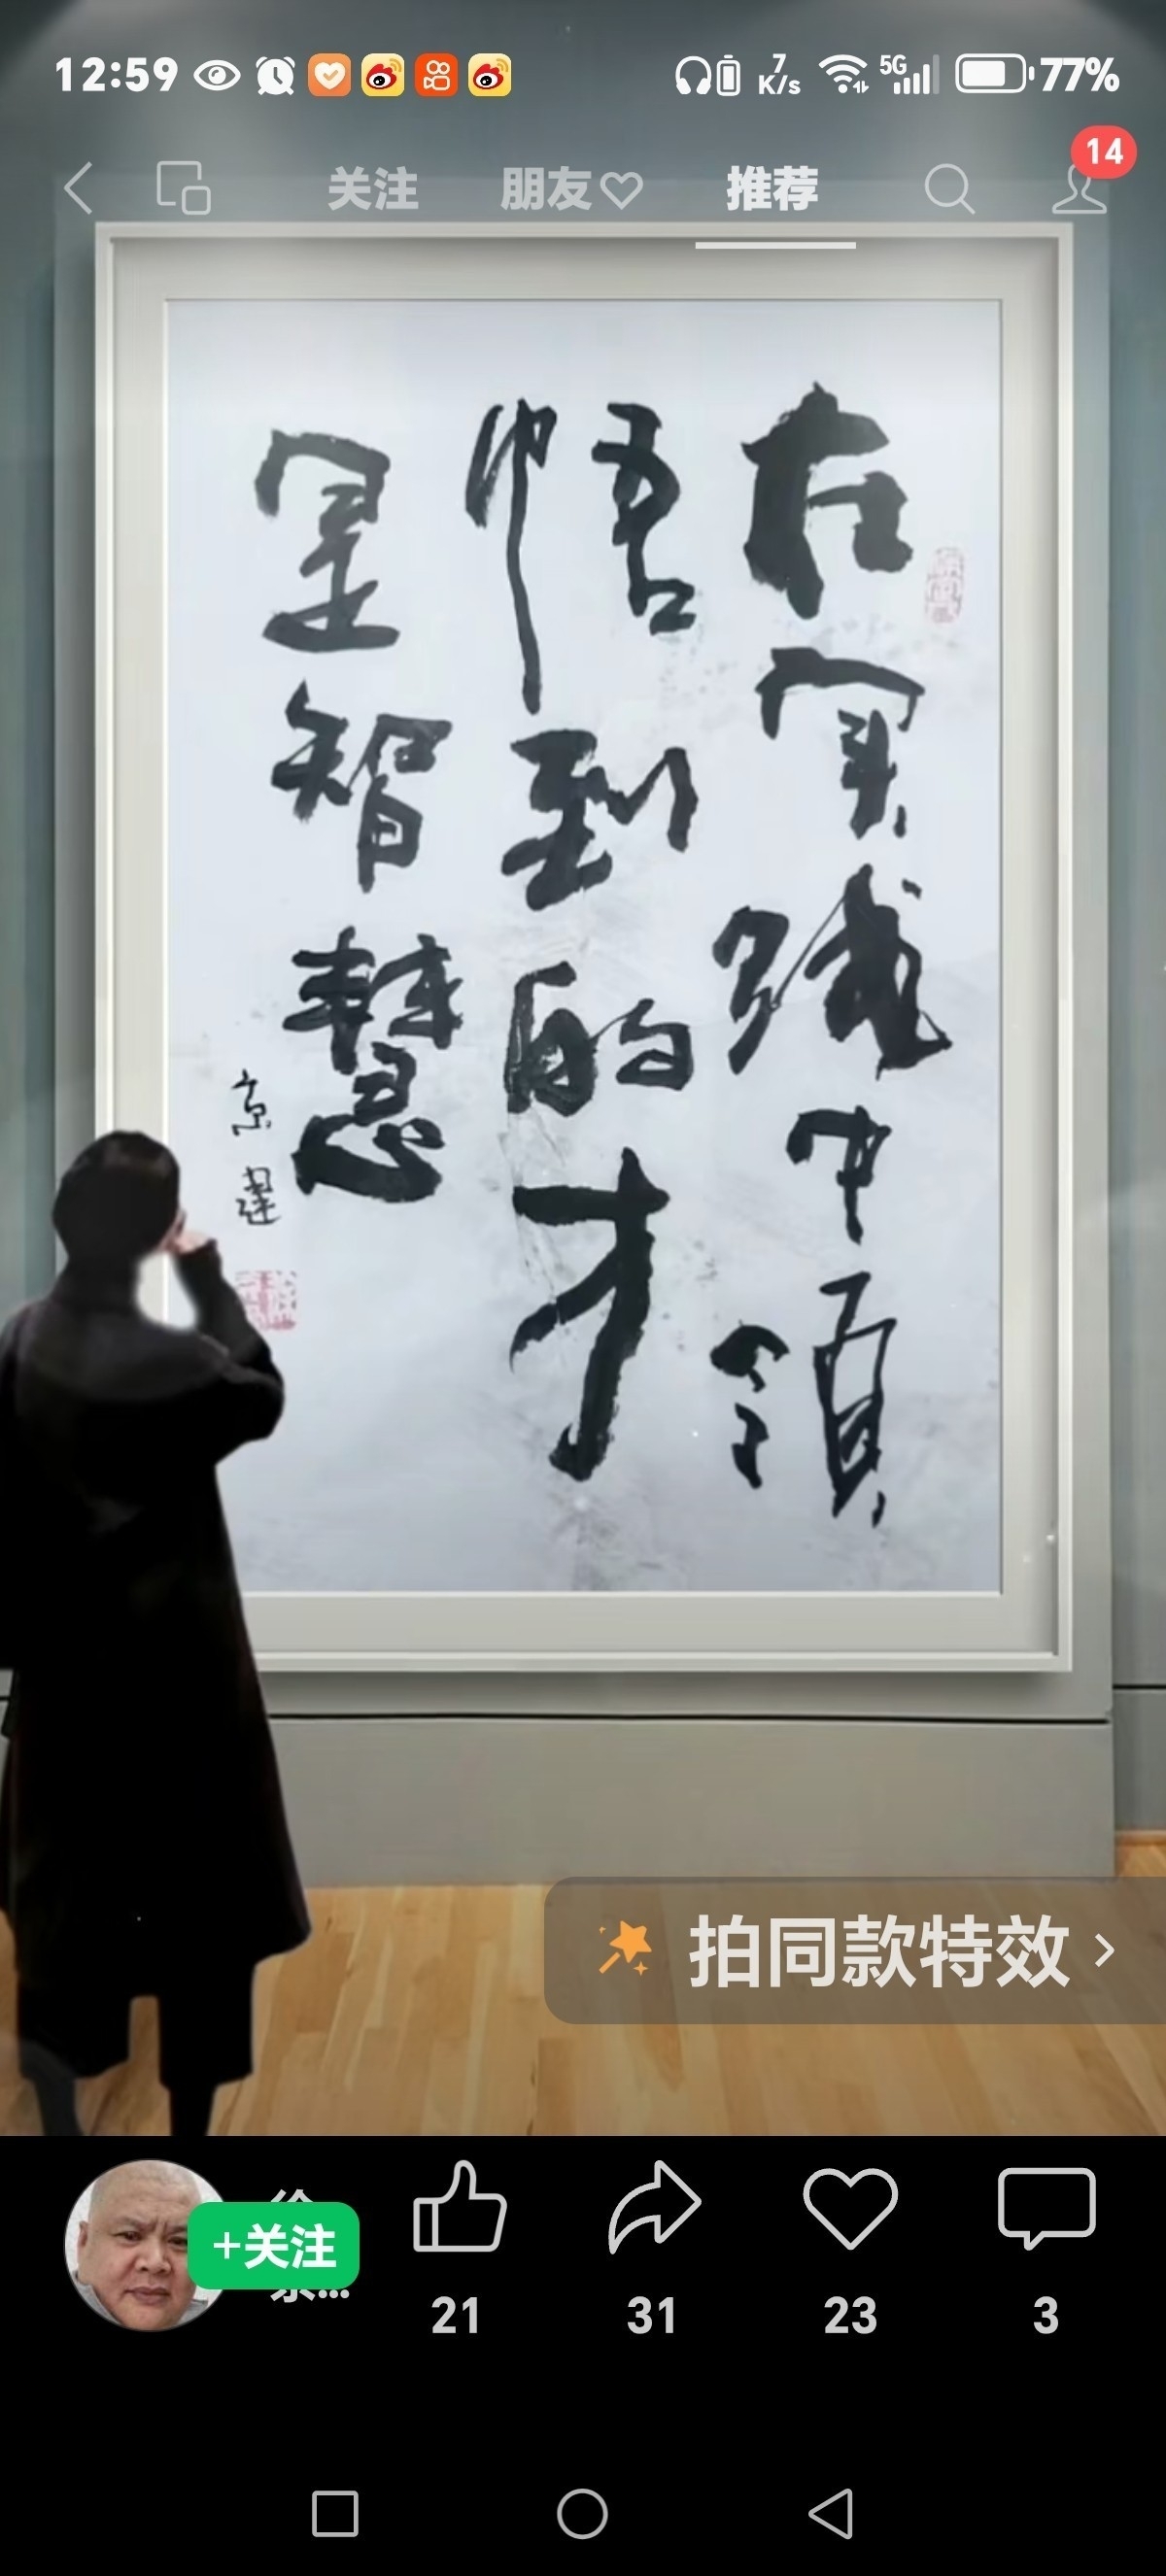 12:59
7 K/s
5G
77%
14
关注 朋友 推荐
在实践中领
悟到的才
是智慧
京选
拍同款特效
+关注
21 31 23 3